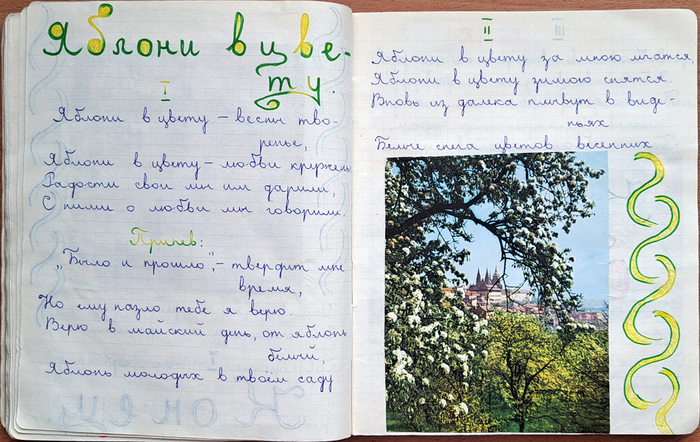 Яблони в цве-
ту.
I
Яблони в цвету – весны тво-
ренье,
Яблони в цвету – любви круженье
Радости свои мы им дарили,
С ними о любви мы говорили.
Припев:
"Было и прошло", – твердит мне
время,
Но ему назло тебе я верю.
Верю в майский день, от яблонь
белый,
Яблонь молодых в твоём саду
Конец
II
Яблони в цвету за мною мчатся
Яблони в цвету зимою снятся
Вновь из далека плывут в виде-
ньях
Белые снега цветов весенних
III